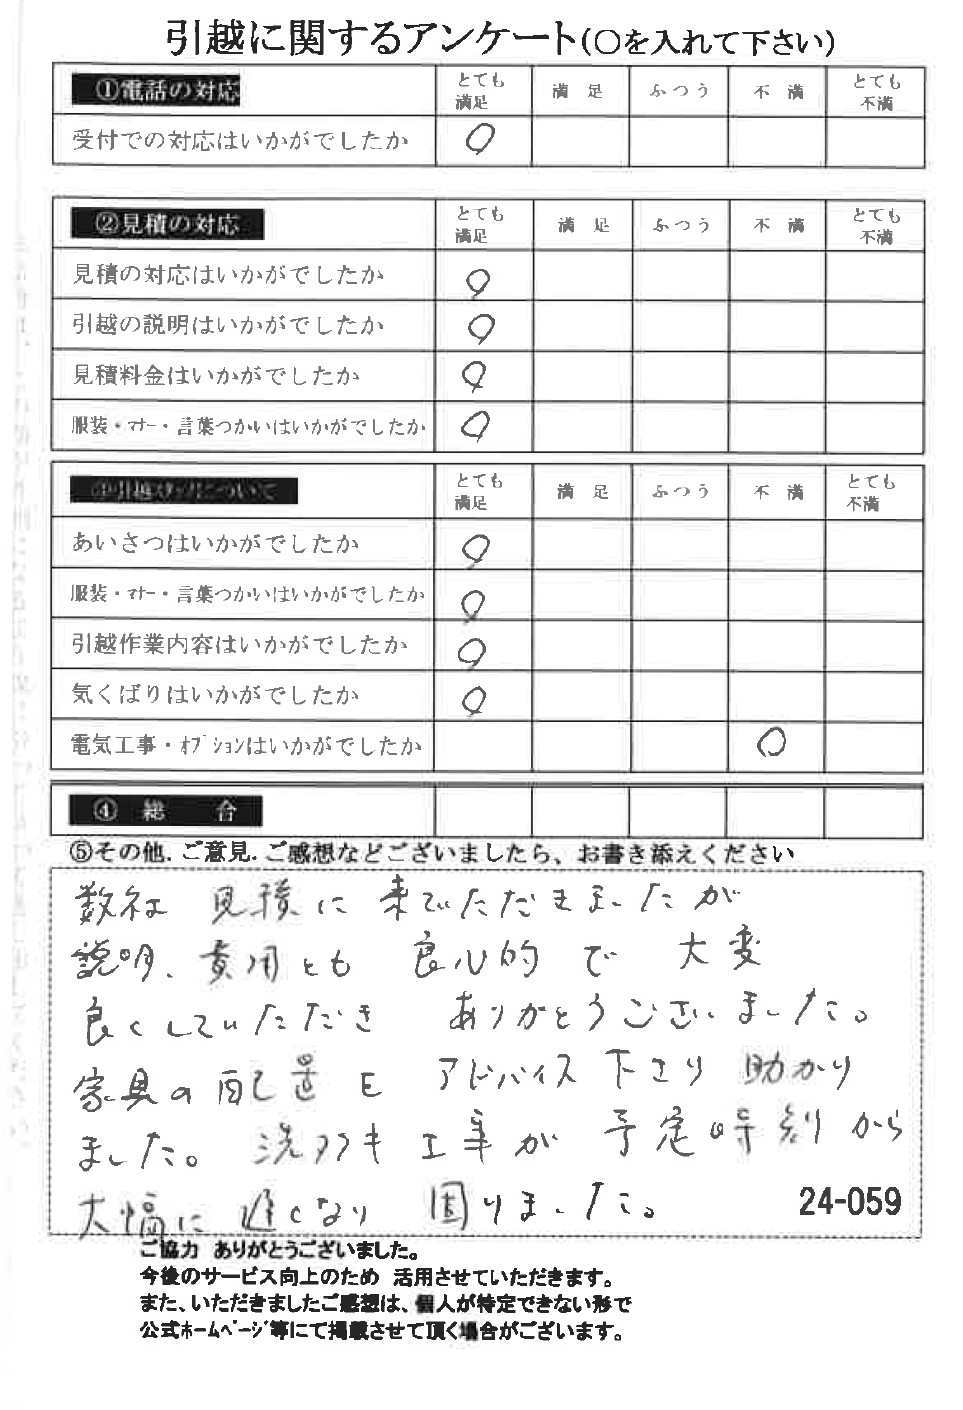 引越に関するアンケート(○を入れて下さい)
①電話の対応 とても満足 満足 ふつう 不満 とても不満
受付での対応はいかがでしたか ○
②見積の対応 とても満足 満足 ふつう 不満 とても不満
見積の対応はいかがでしたか ○
引越の説明はいかがでしたか ○
見積料金はいかがでしたか ○
服装・マナー・言葉つかいはいかがでしたか ○
③引越スタッフについて とても満足 満足 ふつう 不満 とても不満
あいさつはいかがでしたか ○
服装・マナー・言葉つかいはいかがでしたか ○
引越作業内容はいかがでしたか ○
気くばりはいかがでしたか ○
電気工事・オプションはいかがでしたか ○
④ 総 合
⑤その他.ご意見.ご感想などございましたら、お書き添えください
数社 見積に来ていただきましたが
説明、費用とも 良心的で 大変
良くしていただき ありがとうございました。
家具の配置を アドバイス下さり 助かり
ました。洗タクキ工事が 予定時刻から
大幅に遅くなり 困りました。
24-059
ご協力 ありがとうございました。
今後のサービス向上のため 活用させていただきます。
また、いただきましたご感想は、個人が特定できない形で
公式ホームページ等にて掲載させて頂く場合がございます。